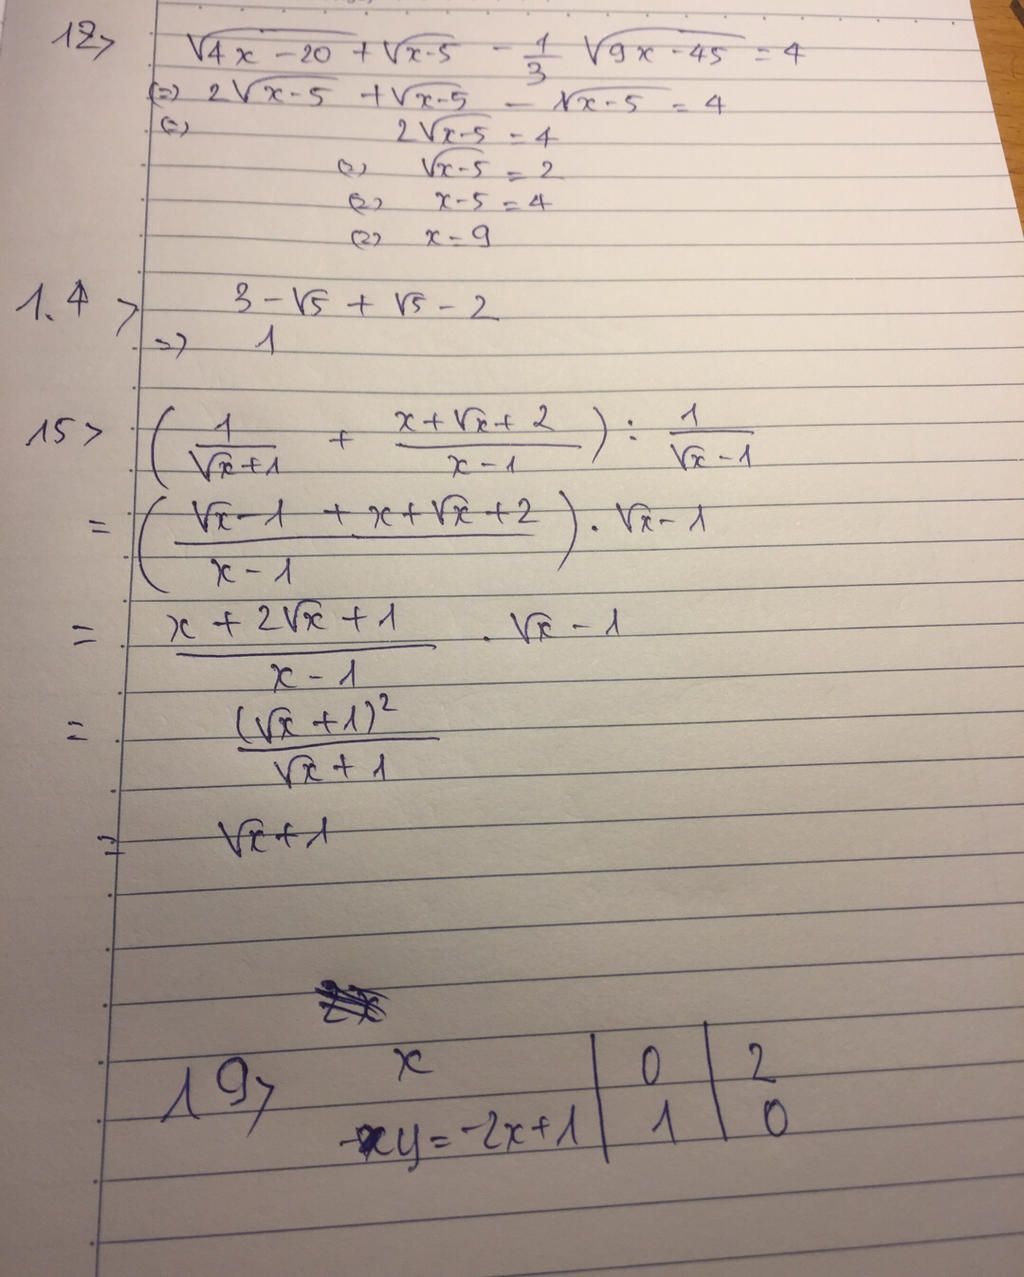 12> √(4x-20) + √(x-5) - 1/3 √(9x-45) = 4
(=) 2√(x-5) + √(x-5) - √(x-5) = 4
(=) 2√(x-5) = 4
(=) √(x-5) = 2
(=) x-5 = 4
(=) x = 9
1.4> 3-√5 + √5-2
=> 1
15> (1/(√x+1) + (x+√x+2)/(x-1)) : 1/(√x-1)
= ((√x-1 + x+√x+2)/(x-1)) . √x-1
= (x+2√x+1)/(x-1) . √x-1
= (√x+1)²/(√x+1)
= √x+1
19> x | 0 | 2
y=-2x+1 | 1 | 0